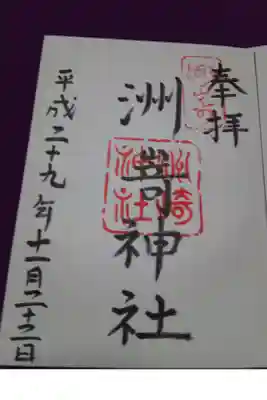 奉拝
洲嵜神社
洲崎
神社
平成二十九年十一月二十三日